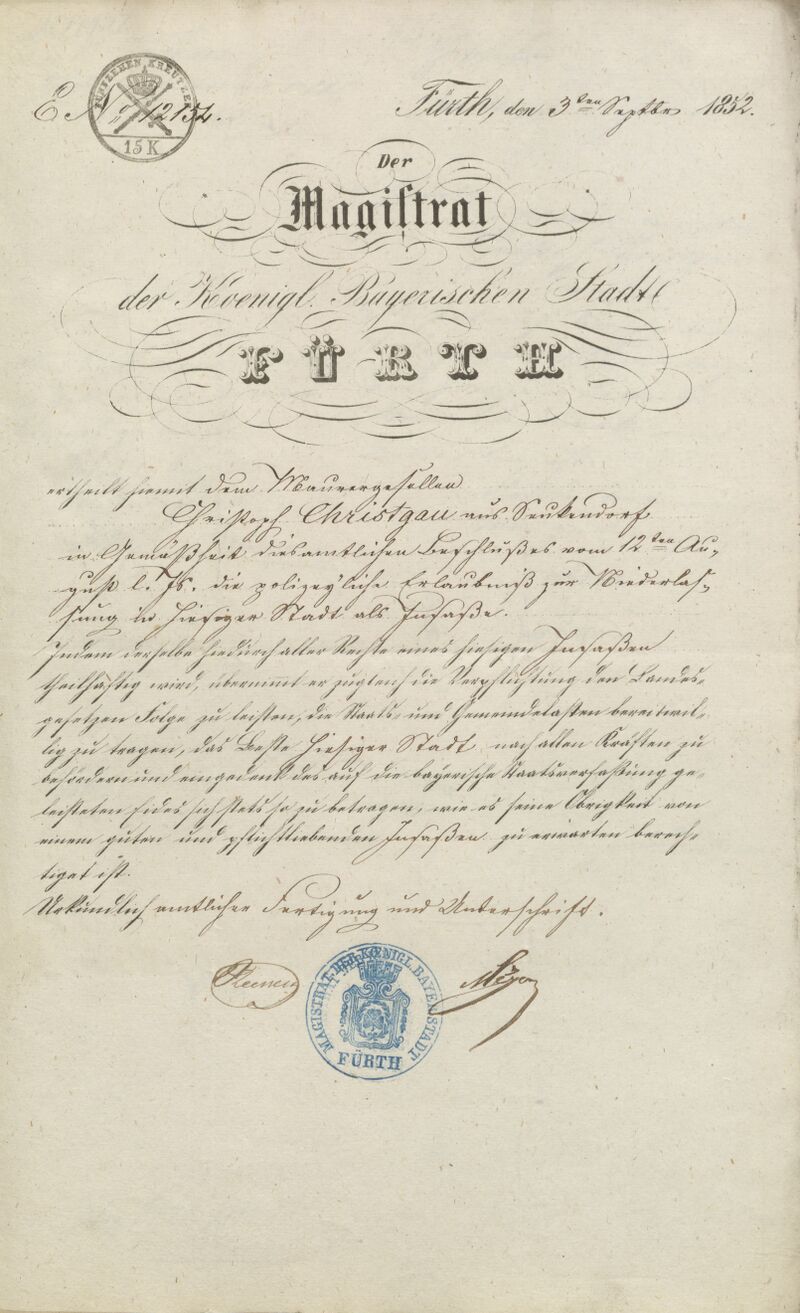 FÜNFZEHEN KREUTZER
15 K
E. Nr. 12152.
Fürth, den 3ten Septbr 1852.
Der
Magistrat
der Koenigl. Bayerischen Stadt
FÜRTH
ertheilt hiemit dem Maurergesellen
Christoph Christgau aus Seukendorf
in Gemäßheit diesamtlichen Beschlußes vom 12ten Au-
gust l. Js. die polizeyliche Erlaubniß zur Niederlas-
sung in hiesiger Stadt als Insaße.
Indem derselbe hiedurch aller Rechte eines hiesigen Insaßen
theilhaftig wird, übernimt er zugleich die Verpflichtung den Landes-
gesetzen Folge zu leisten, die Staats- und Gemeindelasten bereitwil-
lig zu tragen, das Beste hiesiger Stadt nach allen Kräften zu
befördern und eingedenk des auf die bayerische Staatsverfaßung ge-
leisteten Eides sich stets so zu betragen, wie es seine Obrigkeit von
einem guten und pflichtliebenden Insaßen zu erwarten berech-
tiget ist.
Urkundlich amtlicher Fertigung und Unterschrift.
MAGISTRAT DER KOENIGL. BAYER. STADT
FÜRTH